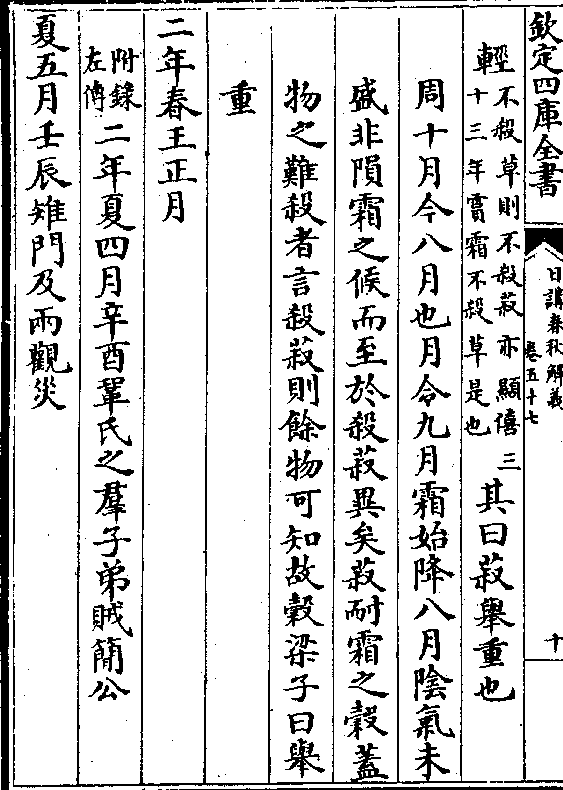 欽定四庫全書
日講春秋解義
卷五十七
十
輕不殺草則不殺菽亦顯僖三
十三年霣霜不殺草是也
其曰菽舉重也
周十月今八月也月令九月霜始降八月陰氣未
盛非隕霜之候而至於殺菽異矣菽耐霜之榖蓋
物之難殺者言殺菽則餘物可知故榖梁子曰舉
重
二年春王正月
附錄
左傳
二年夏四月辛酉鞏氏之羣子弟賊簡公
夏五月壬辰雉門及兩觀災